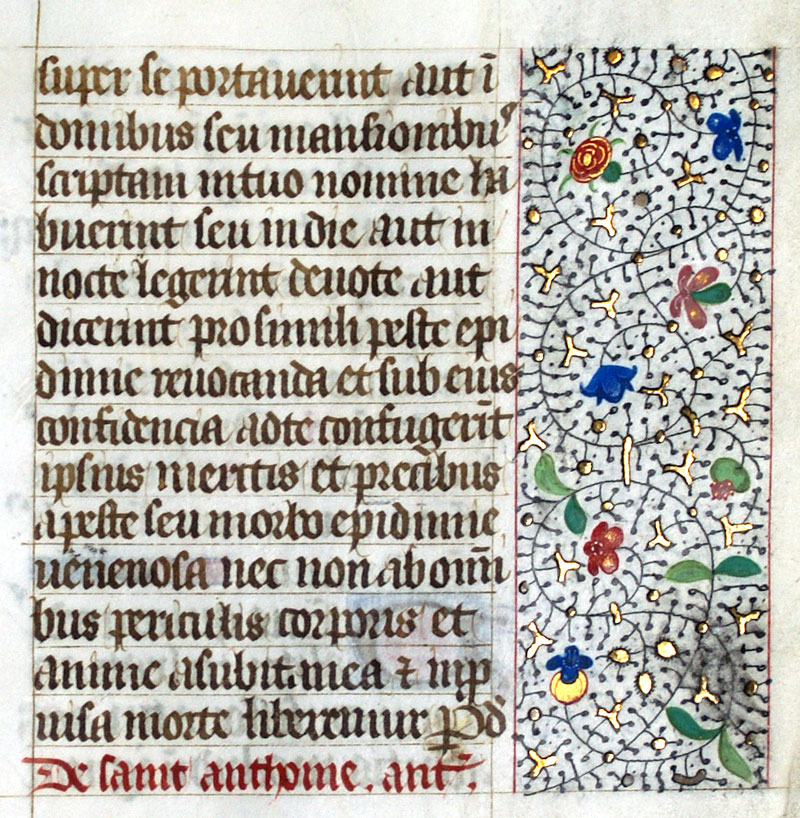 super se portauerint aut ī
domibus seu mansionibus
scriptam intuo nomine ha
buerint seu indie aut in
nocte legerint deuote aut
dicerint pro simili peste epi
dimie reuocanda et sub eius
confidencia adte confugerīt
ipsius meritis et precibus
apeste seu morbo epidimie
uenenosa nec non ab om̄i
bus periculis corporis et
anime asubitanea ⁊ inp
uisa morte liberemur p d
De saint anthoine. ant.